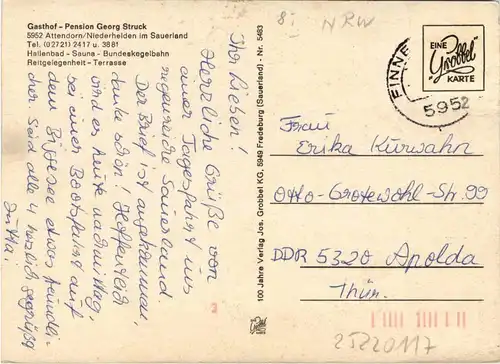 Gasthof - Pension Georg Struck
5952 Attendorn/Niederhelden im Sauerland
Tel. (02721) 2417 u. 3881
Hallenbad - Sauna - Bundeskegelbahn
Reitgelegenheit - Terrasse
Ihr Lieben!
Herzliche Grüße von
einer Tagesfahrt ins
regenreiche Sauerland.
Der Brief ist angekommen,
danke schön! Hoffentlich
wird es heute nachmittag,
bei einer Bootsfahrt auf
dem Biggesee etwas freundli-
cher. Seid alle 4 herzlich gegrüßt
Jutta.
100 Jahre Verlag Jos. Grobbel KG, 5949 Fredeburg (Sauerland) - Nr. 5483
8,- NRW
EINE
Grobbel
KARTE
FINNE
5952
Frau
Erika Kurwahn
Otto-Grotewohl-Str. 99
DDR 5320 Apolda
Thür.
25220117